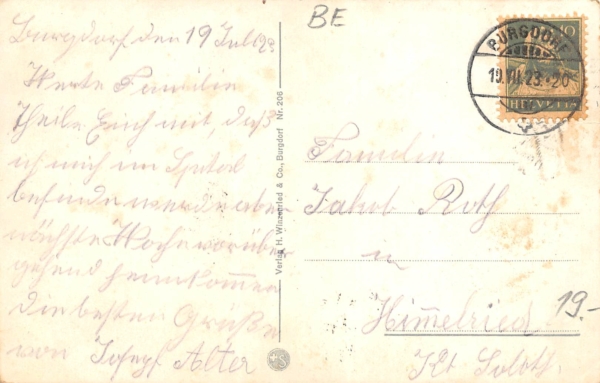 Burgdorf den 19 Juli 23
Werte Familie
Theile Euch mit, daß
ich mich im Spital
befinde werde aber
nächste Woche vorüber
gehend heimkommen
die besten Grüße
von Josef Alter
Verlag H. Winzenried & Co., Burgdorf Nr. 206
BE
BURGDORF
19.VII.23.-20
10
HELVETIA
Familie
Jakob Roth
in
Himmelried
Kt. Soloth.
19.-